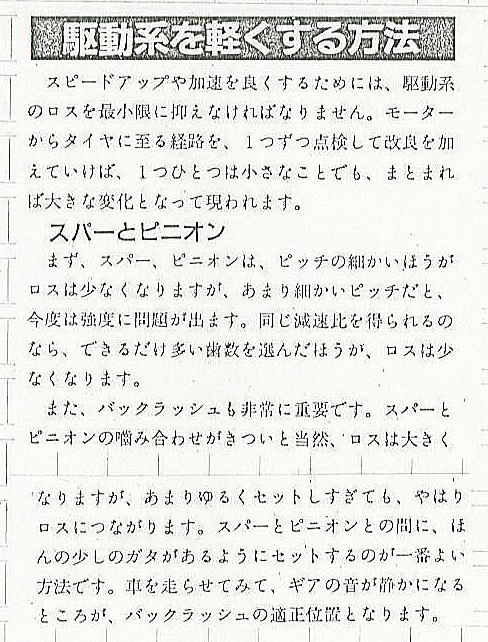 駆動系を軽くする方法
スピードアップや加速を良くするためには、駆動系
のロスを最小限に抑えなければなりません。モーター
からタイヤに至る経路を、１つずつ点検して改良を加
えていけば、１つひとつは小さなことでも、まとまれ
ば大きな変化となって現われます。
スパーとピニオン
まず、スパー、ピニオンは、ピッチの細かいほうが
ロスは少なくなりますが、あまり細かいピッチだと、
今度は強度に問題が出ます。同じ減速比を得られるの
なら、できるだけ多い歯数を選んだほうが、ロスは少
なくなります。
また、バックラッシュも非常に重要です。スパーと
ピニオンの噛み合わせがきついと当然、ロスは大きく
なりますが、あまりゆるくセットしすぎても、やはり
ロスにつながります。スパーとピニオンとの間に、ほ
んの少しのガタがあるようにセットするのが一番よい
方法です。車を走らせてみて、ギアの音が静かになる
ところが、バックラッシュの適正位置となります。